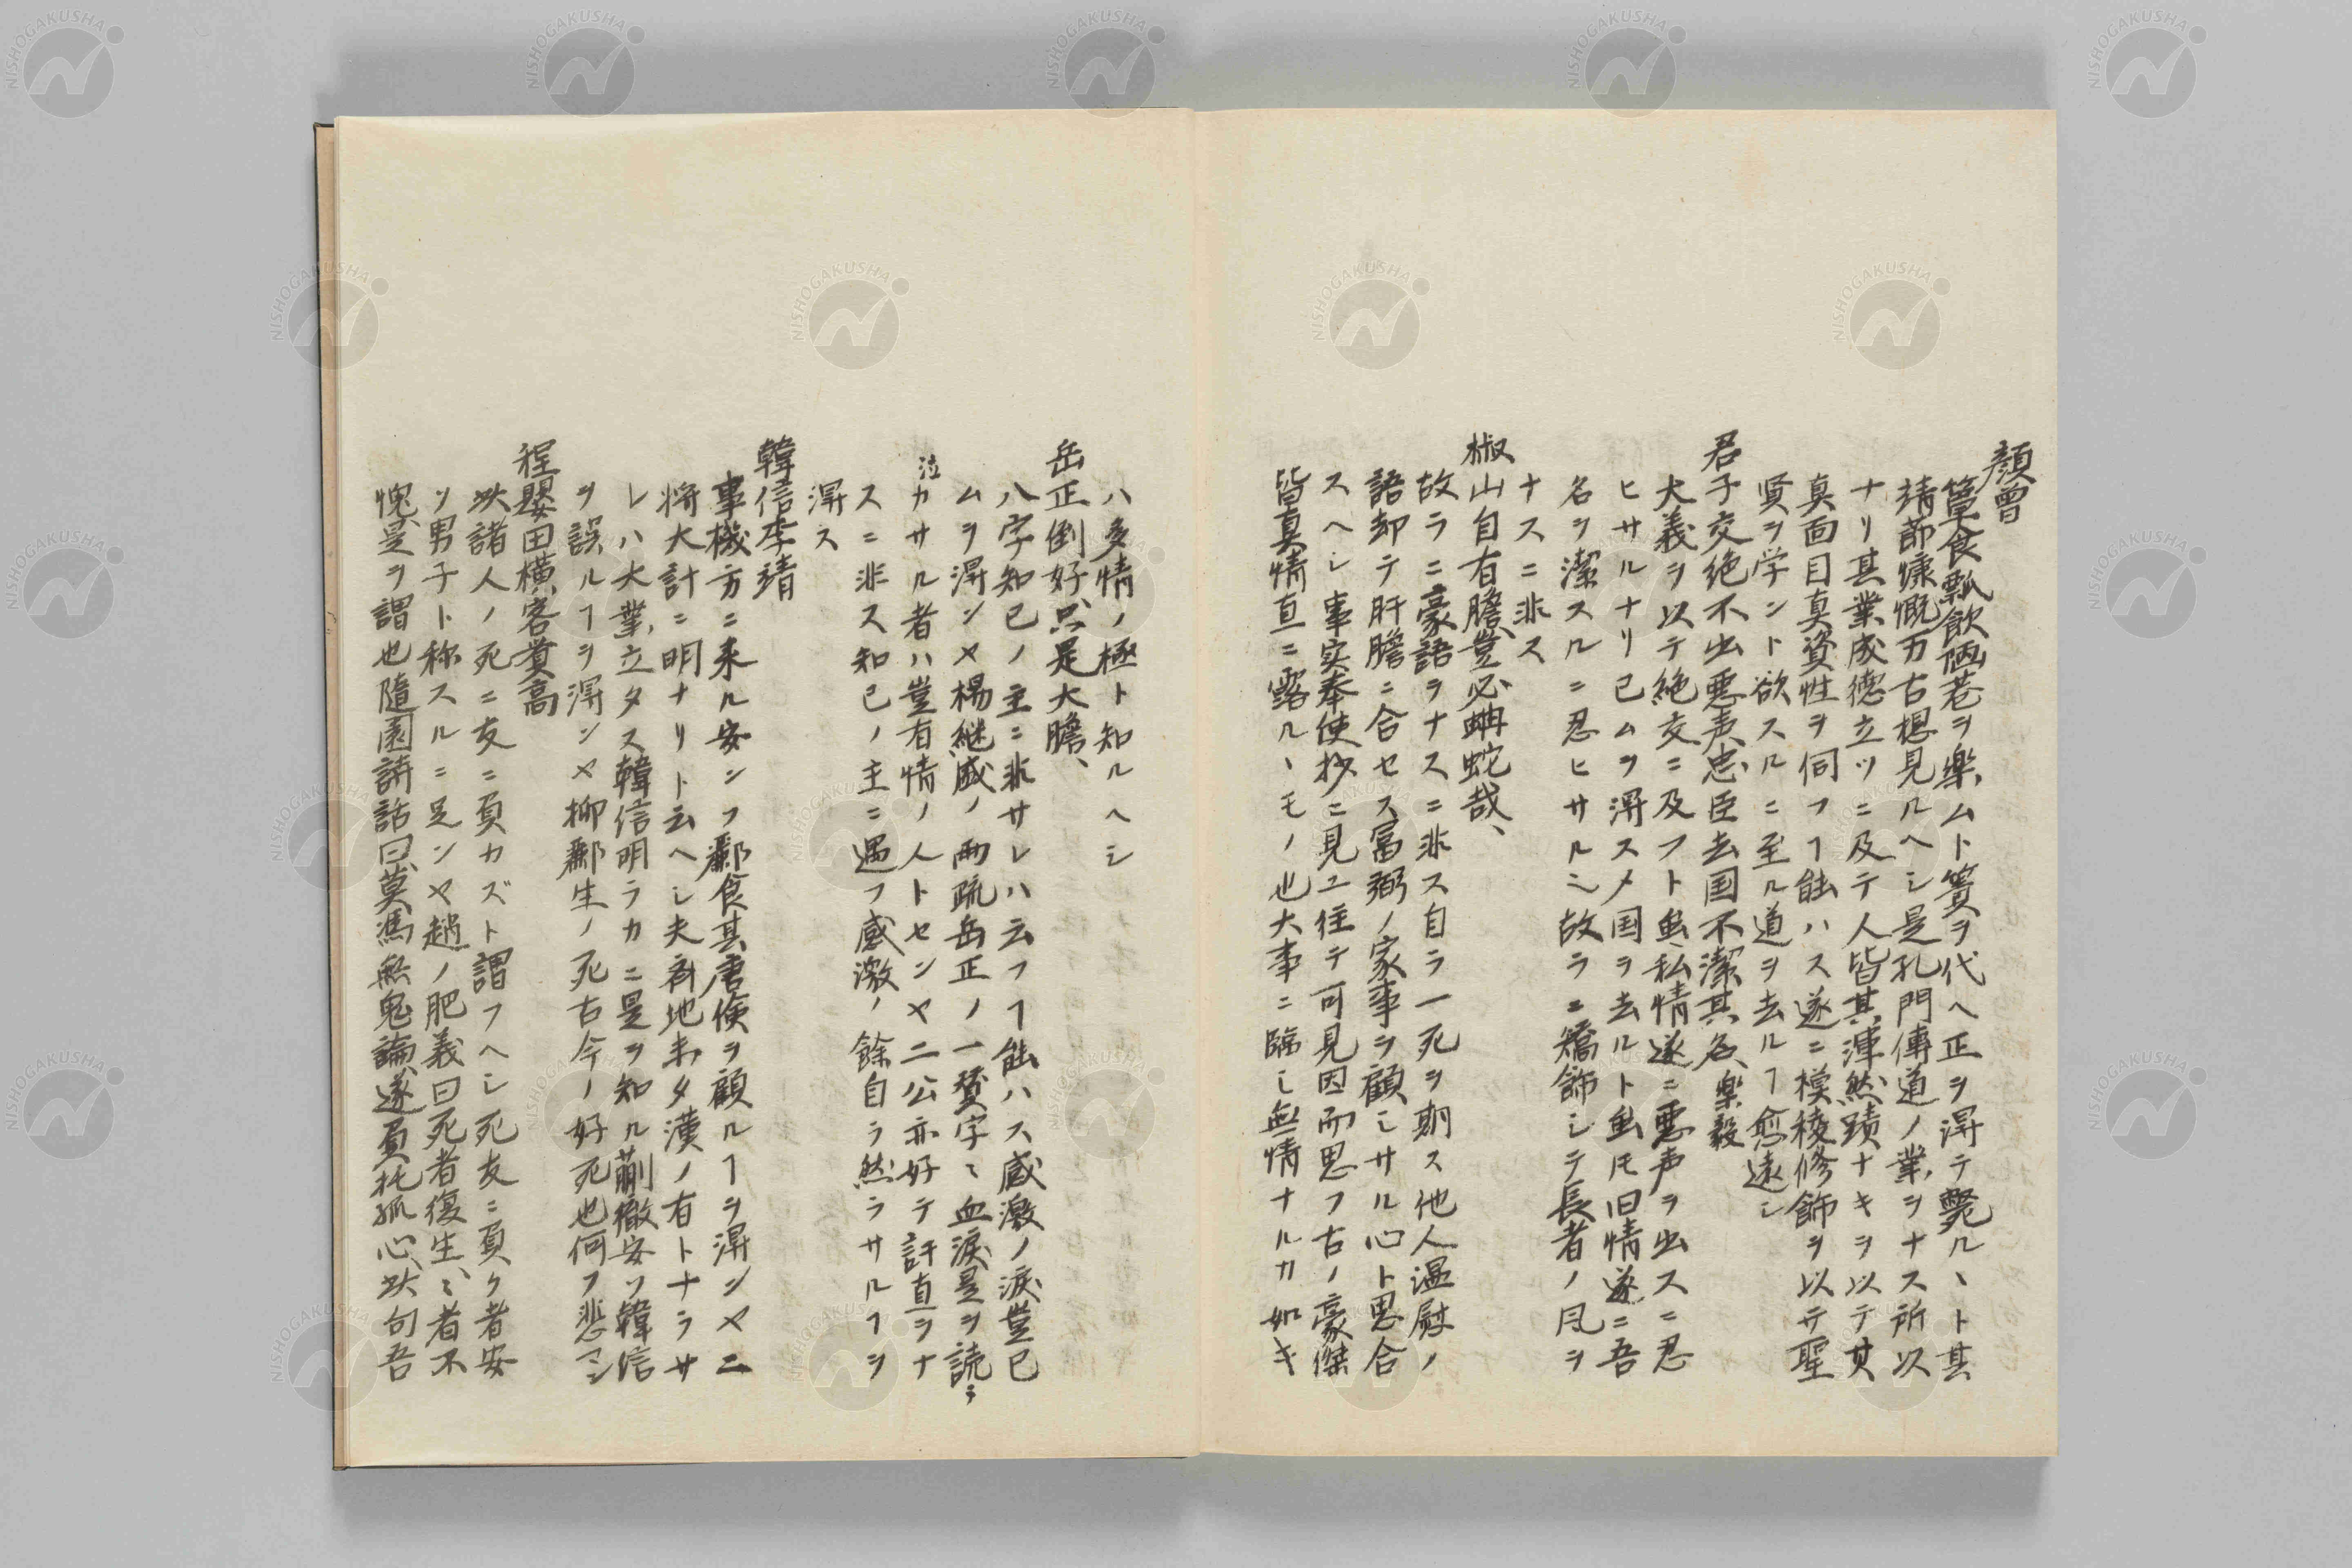 顔曽
簞食瓢飲陋巷ヲ樂ムト簀ヲ代ヘ正ヲ淂テ斃ルヽト其
靖節慷慨万古想見ルヘシ是孔門傳道ノ業ヲナス所以
ナリ其業成徳立ツニ及テ人皆其渾然蹟ナキヲ以テ其
真面目真資性ヲ伺フヿ能ハス遂ニ模稜修飾ヲ以テ聖
賢ヲ学ント欲スルニ至ル道ヲ去ルヿ愈遠シ
君子交絶不出悪声忠臣去国不潔其名樂毅
大義ヲ以テ絶交ニ及フト虽私情遂ニ悪声ヲ出スニ忍
ヒサルナリ已ムヲ淂スメ国ヲ去ルト虽モ旧情遂ニ吾
名ヲ潔スルニ忍ヒサルシ故ラニ矯飾シテ長者ノ風ヲ
ナスニ非ス
椒山自有膽豈必蚺蛇哉、
故ラニ豪語ヲナスニ非ス自ラ一死ヲ期ス他人温慰ノ
語却テ肝膽ニ合セス富弼ノ家事ヲ顧シサル心ト思合
スヘシ事実奉使抄ニ見ユ往テ可見因而思フ古ノ豪傑
皆真情直ニ露ルヽモノ也大事ニ臨ミ無情ナルカ如キ
ハ多情ノ極ト知ルヘシ
岳正倒好只是大膽、
八字知已ノ主ニ非サレハ云フヿ能ハス感激ノ涙豈已
ムヲ淂ンヤ楊継盛ノ両疏岳正ノ一賛字〻血涙是ヲ読テ
泣カサル者ハ豈有情ノ人トセンヤ二公亦好テ訐直ヲナ
スニ非ス知已ノ主ニ遇フ感激ノ餘自ラ然ラサルヿヲ
淂ス
韓信李靖
事機方ニ来ル安ンフ酈食其唐倹ヲ顧ルヿヲ淂ンヤ二
将大計ニ明ナリト云ヘシ夫斉地未タ漢ノ有トナラサ
レハ大業立タス韓信明ラカニ是ヲ知ル蒯徹安ソ韓信
ヲ誤ルヿヲ淂ンヤ柳酈生ノ死古今ノ好死也何フ悲マン
程嬰田横客貫高
此諸人ノ死ニ友ニ負カズト謂フヘシ死友ニ負ク者安
ソ男子ト称スルニ足ンヤ趙ノ肥義曰死者復生〻者不
愧是ヲ謂也隨園詩話曰莫馮無鬼論遂負托孤心此句吾